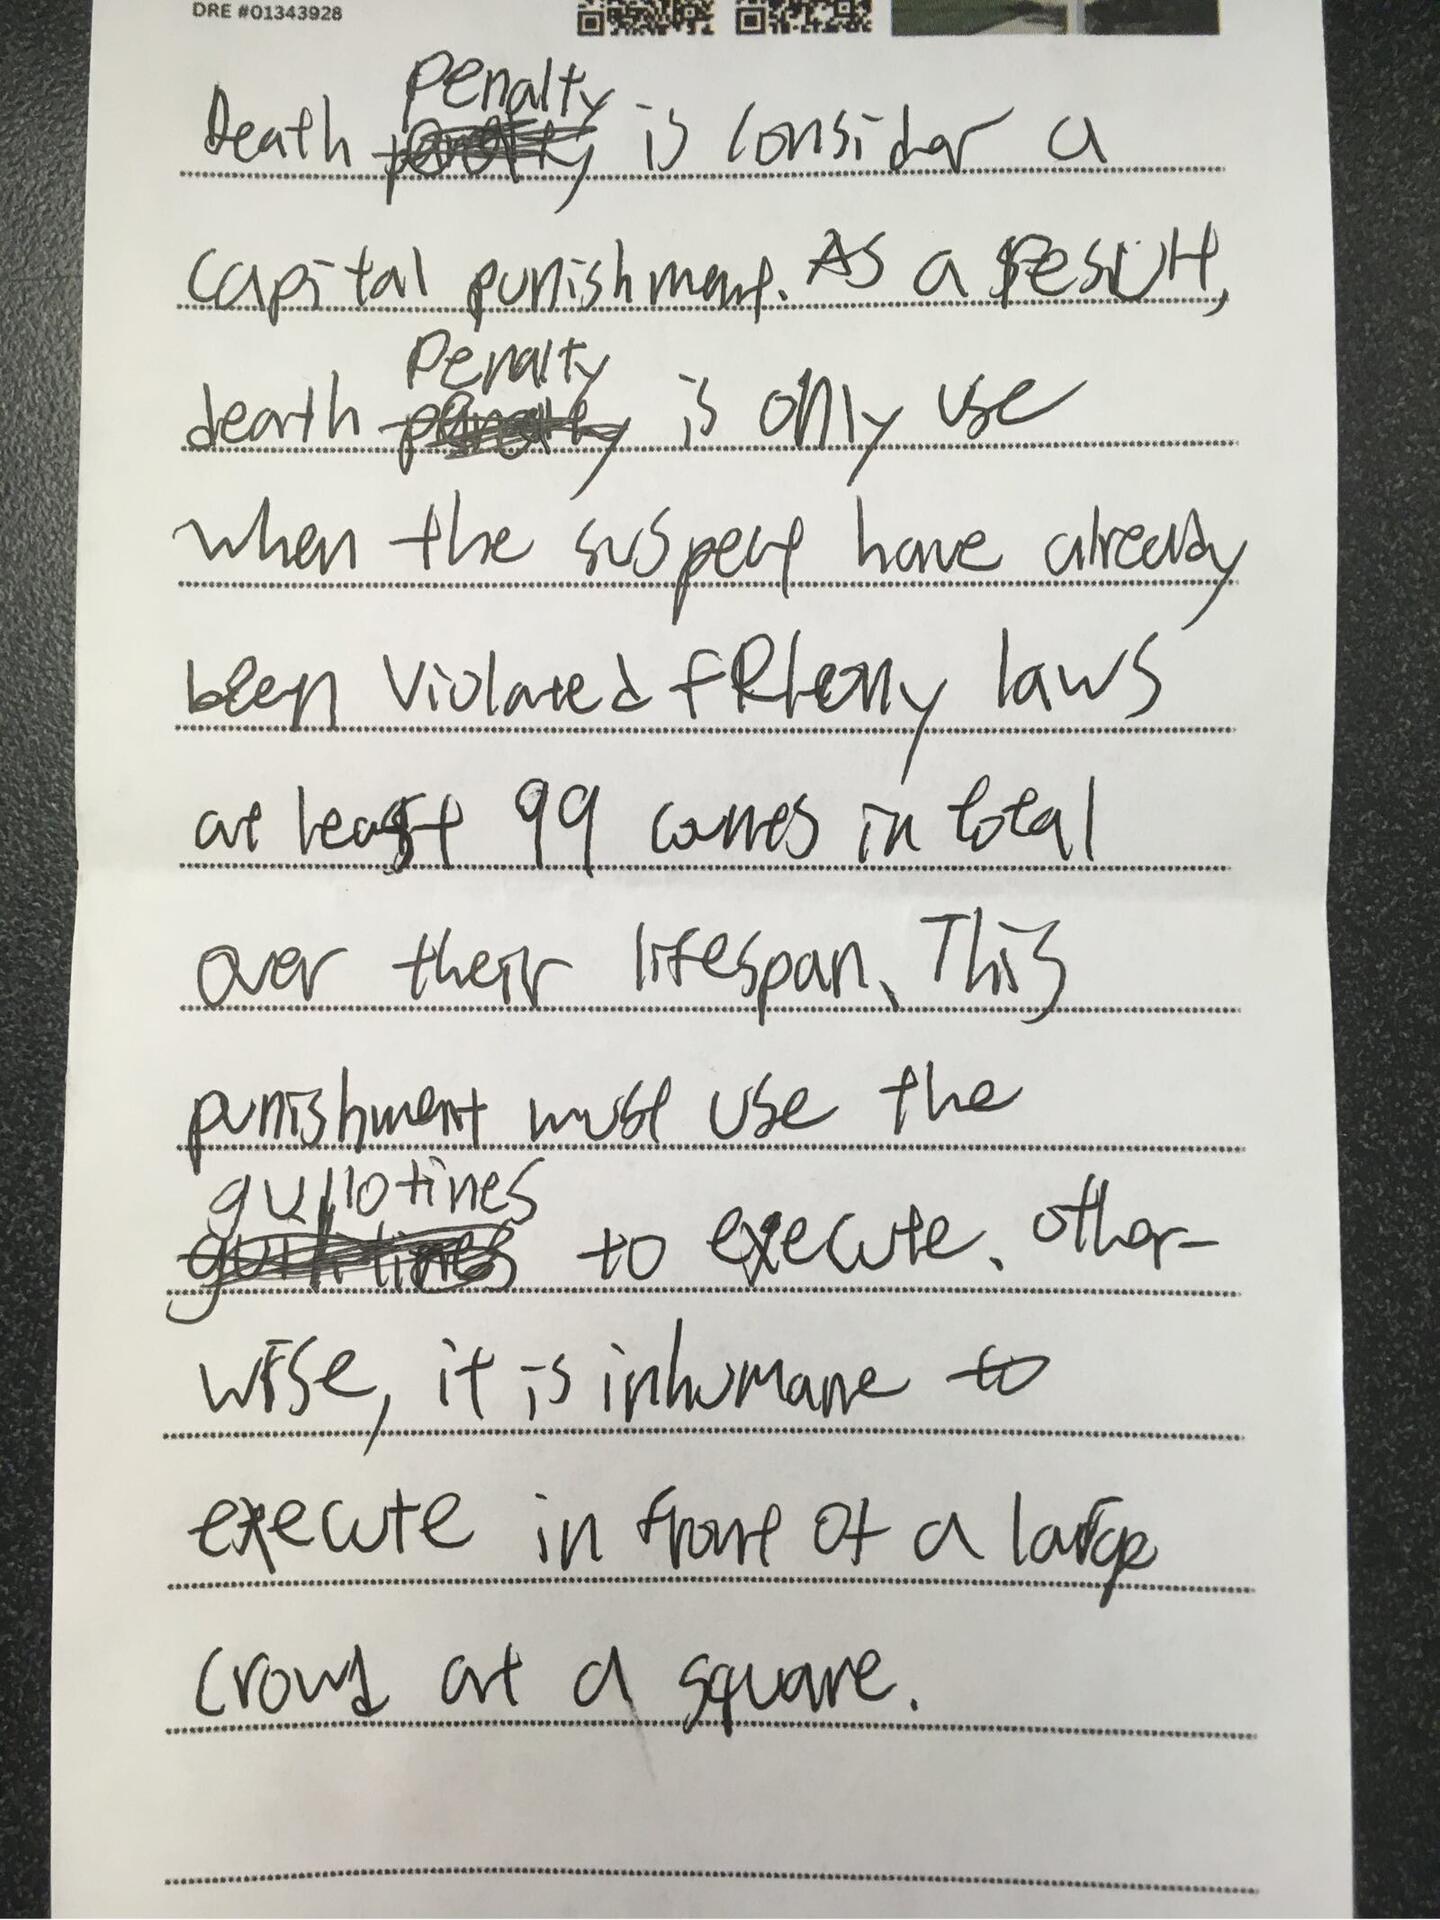 DRE #01343928
Death penalty is consider a
capital punishment. As a result,
death penalty is only use
when the suspect have already
been violated laws
at least 99 in total
over their lifespan. This
punishment must use the
guillotines to execute. Other-
wise, it is inhumane to
execute in front of a large
crowd at a square.